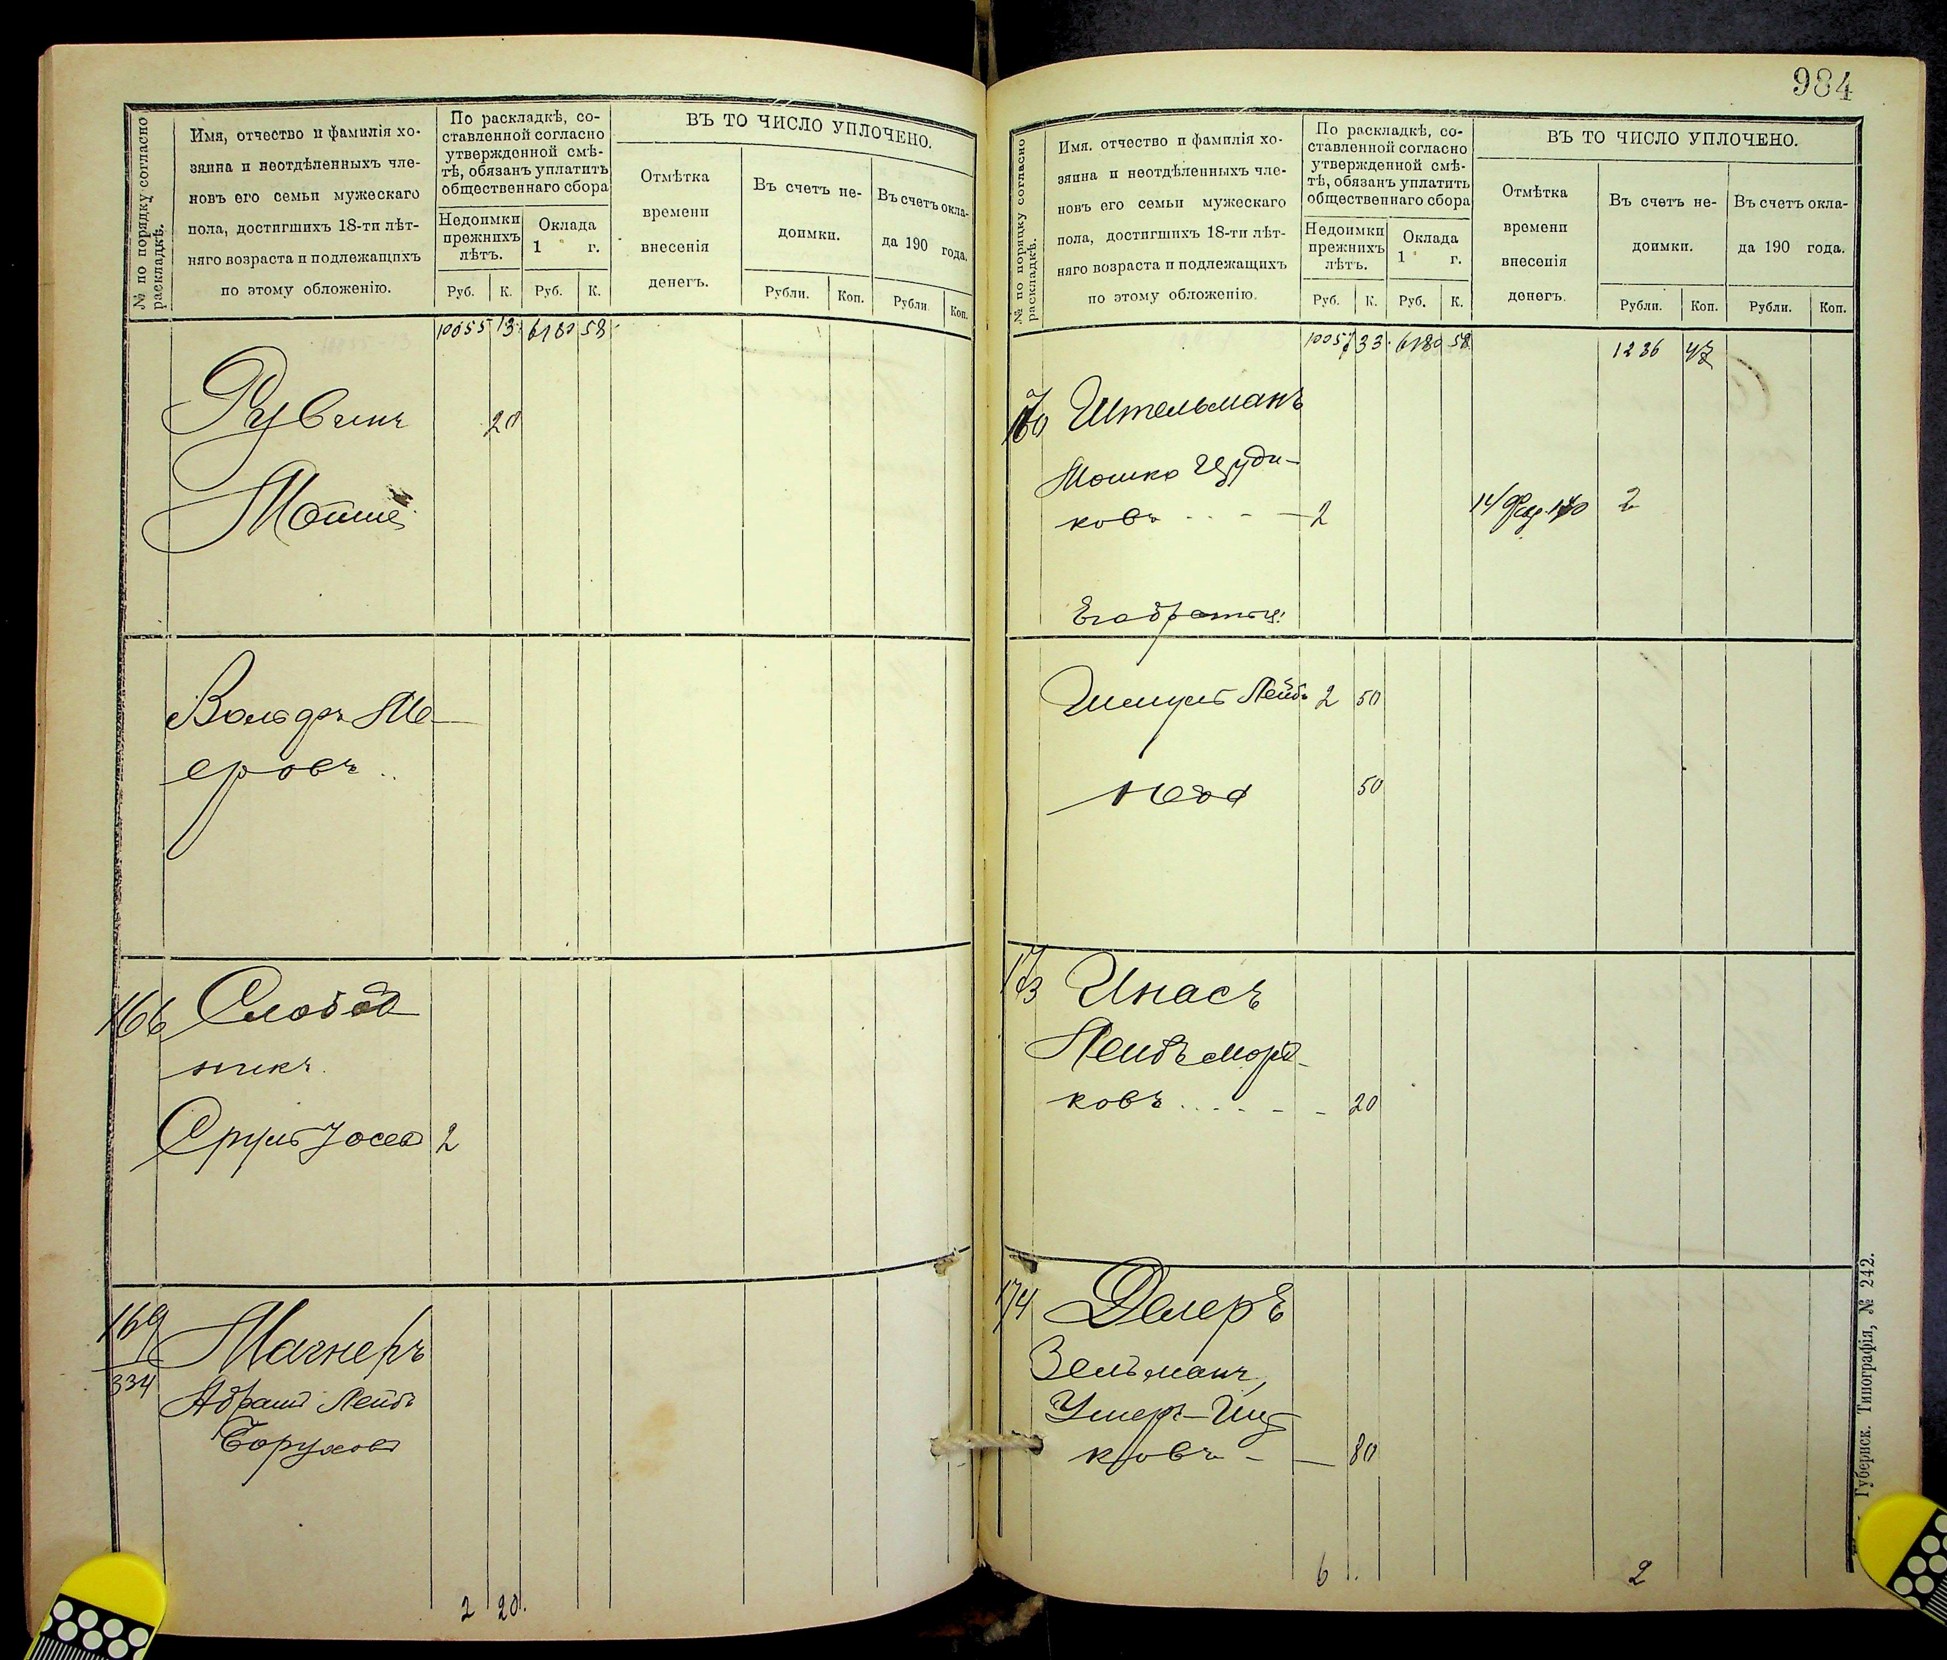 984
№ по порядку согласно раскладкѣ.
Имя, отчество и фамилія хо-
зяина и неотдѣленныхъ чле-
новъ его семьи мужескаго
пола, достигшихъ 18-ти лѣт-
няго возраста и подлежащихъ
по этому обложенію.
По раскладкѣ, со-
ставленной согласно
утвержденной смѣ-
тѣ, обязанъ уплатить
общественнаго сбора
Недоимки
прежнихъ
лѣтъ.
Оклада
1 г.
Руб. К. Руб. К.
ВЪ ТО ЧИСЛО УПЛОЧЕНО.
Отмѣтка
времени
внесенія
денегъ.
Въ счетъ не-
доимки.
Въ счетъ окла-
да 190 года.
Рубли. Коп. Рубли. Коп.
10055 13 6180 58
Рувинъ 20
Мошко
Вольфъ Ме-
еровъ
166 Слобод
никъ
Сруль Іосев 2
169
334
Магнеръ
Абрамъ Лейбъ
Боруховъ
2 20
№ по порядку согласно раскладкѣ.
Имя, отчество и фамилія хо-
зяина и неотдѣленныхъ чле-
новъ его семьи мужескаго
пола, достигшихъ 18-ти лѣт-
няго возраста и подлежащихъ
по этому обложенію.
По раскладкѣ, со-
ставленной согласно
утвержденной смѣ-
тѣ, обязанъ уплатить
общественнаго сбора
Недоимки
прежнихъ
лѣтъ.
Оклада
1 г.
Руб. К. Руб. К.
ВЪ ТО ЧИСЛО УПЛОЧЕНО.
Отмѣтка
времени
внесенія
денегъ.
Въ счетъ не-
доимки.
Въ счетъ окла-
да 190 года.
Рубли. Коп. Рубли. Коп.
10057 33 6180 58 1236 47
170 Штельманъ
Мошко Иуди-
ковъ 2 14 2
Его братья:
Шмуль Лейбъ 2 50
50
173 Инасъ
Лейбъ Морд-
ковъ 20
174 Делеръ
Зельманъ,
Умеръ-Иц
ковъ 80
6 2
Губернск. Типографія, № 242.